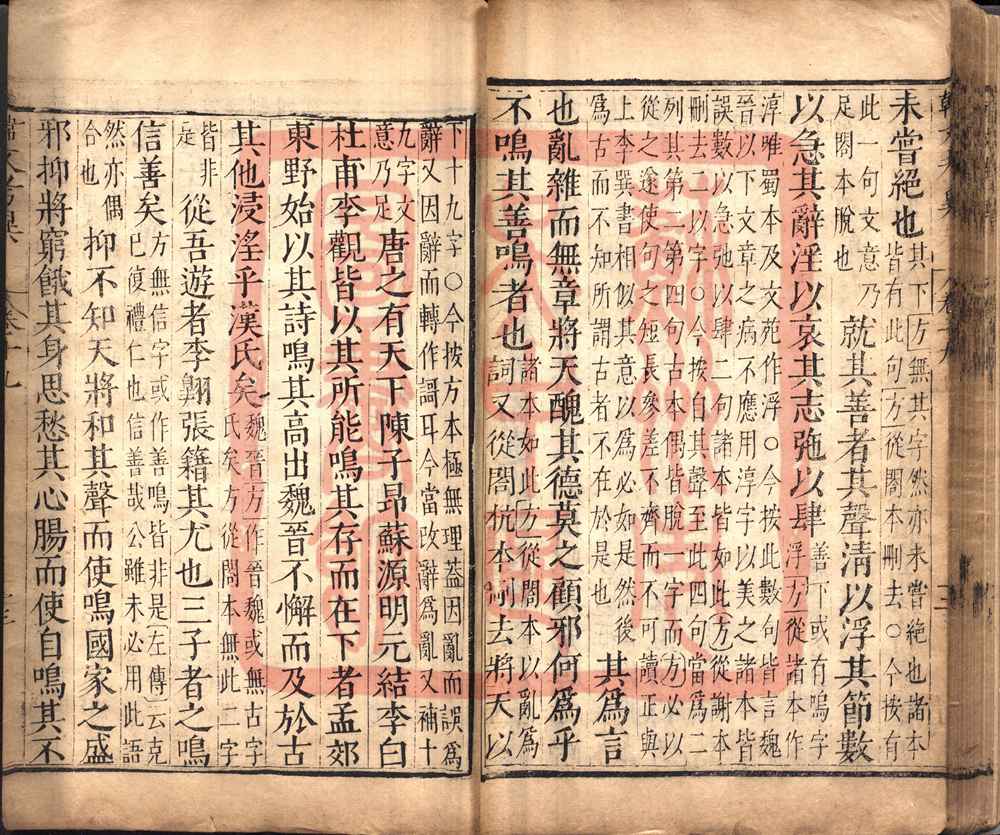 未嘗絕也其下方無其字然亦未嘗絕也諸本皆有此句方從閣本刪去○今按有
此一句文意乃足閣本脫也就其善者其聲清以浮其節數
以急其辭淫以哀其志弛以肆善下或有鳴字浮方從諸本作
淳唯蜀本及文苑作浮○今按此數句皆言魏晉以下文章之病不應用淳字以美之諸本皆
誤數以急弛以肆二句諸本皆如此方從謝本刪去二以字○今按自其聲至此四句當為二
列其第二第四句古本偶皆脫一字而方必以從之遂使句之短長參差不齊而不可讀正與
上李巽書相似其意以爲必如是然後爲古而不知所謂古者不在於是也其爲言
也亂雜而無章將天醜其德莫之顧邪何爲乎
不鳴其善鳴者也諸本如此方從閣本以亂爲詞又從閣杭本刪去將天以
下十九字○今按方本極無理蓋因亂而誤爲辭又因辭而轉作詞耳今當改辭爲亂又補十
九字文意乃足唐之有天下陳子昂蘇源明元結李白
杜甫李觀皆以其所能鳴其存而在下者孟郊
東野始以其詩鳴其高出魏晉不懈而及於古
其他浸淫乎漢氏矣魏晉方作晉魏或無古字氏矣方從閣本無此二字
皆非是從吾遊者李翺張籍其尤也三子者之鳴
信善矣方無信字或作善鳴皆非是左傳云克已復禮仁也信善哉公雖未必用此語
然亦偶合也抑不知天將和其聲而使鳴國家之盛
邪抑將窮餓其身思愁其心腸而使自鳴其不